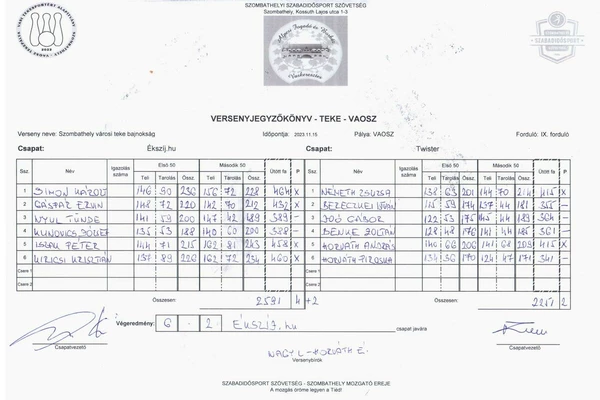 SZOMBATHELYI SZABADIDŐSPORT SZÖVETSÉG
Szombathely, Kossuth Lajos utca 1-3
Alpesi Fogadó és Horgásztó
Vaskeresztes
SZABADIDŐSPORT
VERSENYJEGYZŐKÖNYV - TEKE - VAOSZ
Verseny neve: Szombathely városi teke bajnokság Időpontja: 2023.11.15 Pálya: VAOSZ Forduló: IX. forduló
Csapat: Ékszíj.hu Csapat: Twister
Ssz. Név Igazolás száma Első 50 Második 50 Ütött fa P Ssz. Név Igazolás száma Első 50 Második 50 Ütött fa P
Teli Tarolás Össz Teli Tarolás Össz Teli Tarolás Össz Teli Tarolás Össz
1 SIMON KÁROLY 146 90 236 156 72 228 464 X 1 NÉMETH ZSUZSA 138 63 201 144 70 214 415 X
2 GÁSPÁR ERVIN 148 72 220 142 70 212 432 X 2 BERECZKEI ISTVÁN 115 59 174 137 44 181 355 -
3 NYUL TÜNDE 141 59 200 147 42 189 389 - 3 JOÓ GÁBOR 122 53 175 145 44 189 364 -
4 KUNOVICS JÓZSEF 135 53 188 140 60 200 388 - 4 BENKE ZOLTÁN 128 48 176 141 44 185 361 -
5 PÉTER 144 71 215 162 81 243 458 X 5 HORVÁTH ANDRÁS 140 66 206 141 68 209 415 X
6 KIRICSI KRISZTIÁN 137 89 226 162 72 234 460 X 6 HORVÁTH PIROSKA 134 36 170 124 47 171 341 -
Csere 1 Csere 1
Csere 2 Csere 2
Összesen: 2591 4 +2 Összesen: 2251 2
Végeredmény: 6 - 2 ÉKSZÍJ.hu csapat javára
Csapatvezető Csapatvezető
NAGY L - HORVÁTH E.
Versenybírók
SZABADIDŐSPORT SZÖVETSÉG - SZOMBATHELY MOZGATÓ EREJE
A mozgás öröme legyen a Tiéd!